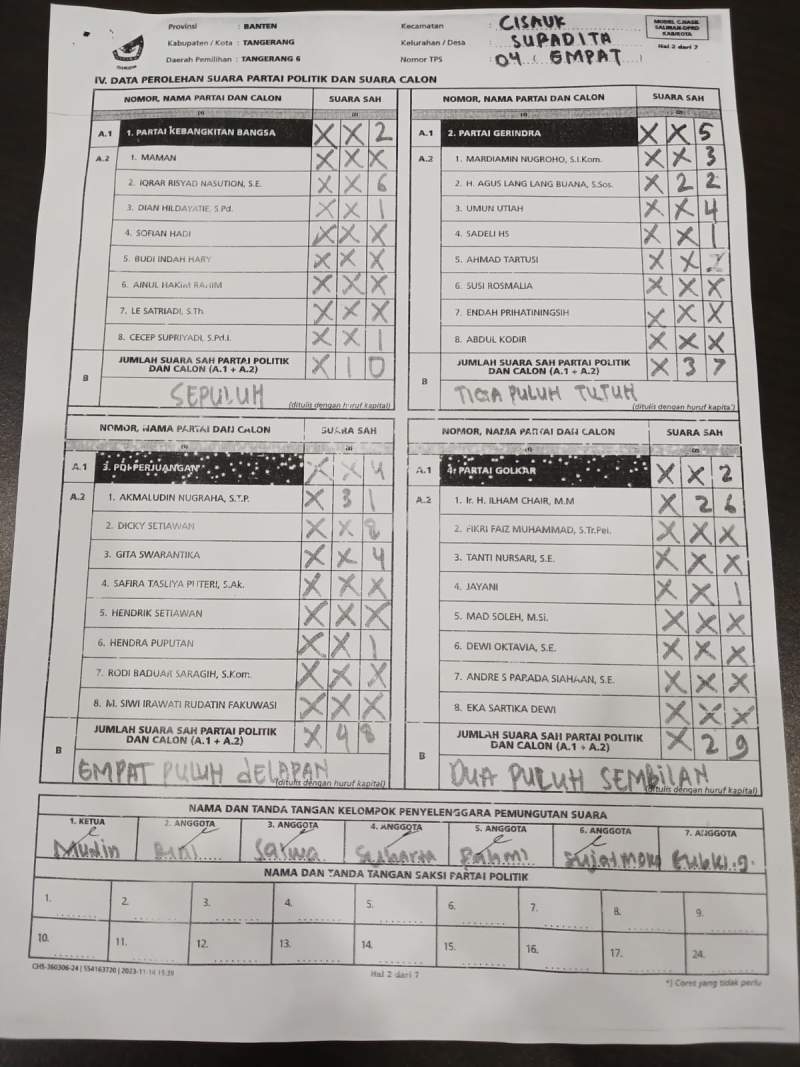 Provinsi : BANTEN
Kabupaten / Kota : TANGERANG
Daerah Pemilihan : TANGERANG 6
Kecamatan : CISAUK
Kelurahan / Desa : SUPADITA
Nomor TPS : 04 ( EMPAT )
MODEL C.HASIL
SALINAN-DPRD
KAB/KOTA
Hal 2 dari 7
IV. DATA PEROLEHAN SUARA PARTAI POLITIK DAN SUARA CALON
NOMOR, NAMA PARTAI DAN CALON SUARA SAH
(1) (2)
A.1 1. PARTAI KEBANGKITAN BANGSA X X 2
A.2 1. MAMAN X X X
2. IQRAR RISYAD NASUTION, S.E. X X 6
3. DIAN HILDAYATIE, S.Pd. X X 1
4. SOFIAN HADI X X X
5. BUDI INDAH HARY X X X
6. AINUL HAKIM RAHIM X X X
7. LE SATRIADI, S.Th X X X
8. CECEP SUPRIYADI, S.Pd.I. X X 1
B JUMLAH SUARA SAH PARTAI POLITIK
DAN CALON (A.1 + A.2) X 1 0
SEPULUH
(ditulis dengan huruf kapital)
NOMOR, NAMA PARTAI DAN CALON SUARA SAH
(1) (2)
A.1 2. PARTAI GERINDRA X X 5
A.2 1. MARDIAMIN NUGROHO, S.I.Kom. X X 3
2. H. AGUS LANG LANG BUANA, S.Sos. X 2 2
3. UMUN UTIAH X X 4
4. SADELI HS X X 1
5. AHMAD TARTUSI X X
6. SUSI ROSMALIA X X X
7. ENDAH PRIHATININGSIH X X X
8. ABDUL KODIR X X X
B JUMLAH SUARA SAH PARTAI POLITIK
DAN CALON (A.1 + A.2) X 3 7
TIGA PULUH TUTUH
(ditulis dengan huruf kapital)
NOMOR, NAMA PARTAI DAN CALON SUARA SAH
(1) (2)
A.1 3. PDI PERJUANGAN X X 4
A.2 1. AKMALUDIN NUGRAHA, S.T.P. X 3 1
2. DICKY SETIAWAN X X 8
3. GITA SWARANTIKA X X 4
4. SAFIRA TASLIYA PUTERI, S.Ak. X X X
5. HENDRIK SETIAWAN X X X
6. HENDRA PUPUTAN X X 1
7. RODI BADUAR SARAGIH, S.Kom. X X X
8. M. SIWI IRAWATI RUDATIN FAKUWASI X X X
B JUMLAH SUARA SAH PARTAI POLITIK
DAN CALON (A.1 + A.2) X 4 8
EMPAT PULUH dELAPAN
(ditulis dengan huruf kapital)
NOMOR, NAMA PARTAI DAN CALON SUARA SAH
(1) (2)
A.1 4. PARTAI GOLKAR X X 2
A.2 1. Ir. H. ILHAM CHAIR, M.M X 2 6
2. FIKRI FAIZ MUHAMMAD, S.Tr.Pel. X X X
3. TANTI NURSARI, S.E. X X X
4. JAYANI X X 1
5. MAD SOLEH, M.Si. X X X
6. DEWI OKTAVIA, S.E. X X X
7. ANDRE S PARADA SIAHAAN, S.E. X X X
8. EKA SARTIKA DEWI X X X
B JUMLAH SUARA SAH PARTAI POLITIK
DAN CALON (A.1 + A.2) X 2 9
DUA PULUH SEMBILAN
(ditulis dengan huruf kapital)
NAMA DAN TANDA TANGAN KELOMPOK PENYELENGGARA PEMUNGUTAN SUARA
1. KETUA 2. ANGGOTA 3. ANGGOTA 4. ANGGOTA 5. ANGGOTA 6. ANGGOTA 7. ANGGOTA
Mudin Sarwa Suharta Fahmi Sujatmoko
NAMA DAN TANDA TANGAN SAKSI PARTAI POLITIK
1. 2. 3. 4. 5. 6. 7. 8. 9.
10. 11. 12. 13. 14. 15. 16. 17. 24.
CHS-360306-24 | 554163720 | 2023-11-16 15:39
Hal 2 dari 7
*) Coret yang tidak perlu